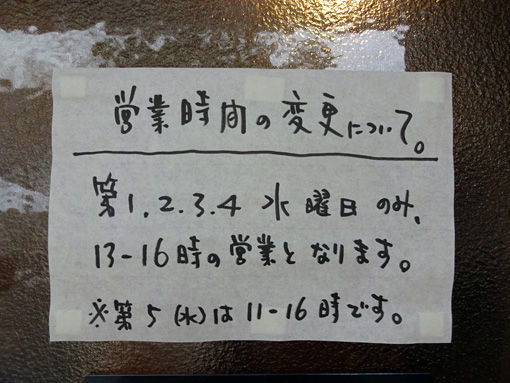 営業時間の変更について。
第1.2.3.4 水曜日のみ、
13-16時の営業となります。
※第5(水)は11-16時です。